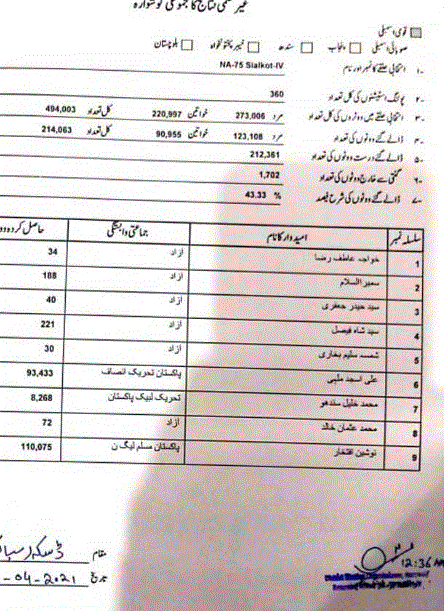 غیر حتمی نتائج کا مجموعی گوشوارہ
قومی اسمبلی
صوبائی اسمبلی پنجاب سندھ خیبر پختونخواہ بلوچستان
۱- انتخابی حلقے کا نمبر اور نام NA-75 Sialkot-IV
۲- پولنگ اسٹیشنوں کی کل تعداد 360
۳- انتخابی حلقے میں ووٹروں کی کل تعداد مرد 273,006 خواتین 220,997 کل تعداد 494,003
۴- ڈالے گئے ووٹوں کی تعداد مرد 123,108 خواتین 90,955 کل تعداد 214,063
۵- ڈالے گئے درست ووٹوں کی تعداد 212,361
۶- گنتی سے خارج ووٹوں کی تعداد 1,702
۷- ڈالے گئے ووٹوں کی شرح فیصد 43.33 %
سلسلہ نمبر امیدوار کا نام جماعتی وابستگی حاصل کردہ وو
1 خواجہ عاطف رضا آزاد 34
2 سمیر السلام آزاد 188
3 سید حیدر جعفری آزاد 40
4 سید شاہ فیصل آزاد 221
5 شمسہ سلیم بخاری آزاد 30
6 علی اسجد ملہی پاکستان تحریک انصاف 93,433
7 محمد خلیل سندھو تحریک لبیک پاکستان 8,268
8 محمد عثمان خالد آزاد 72
9 نوشین افتخار پاکستان مسلم لیگ ن 110,075
مقام ڈسکہ
تاریخ -04-2021
12:36 AM